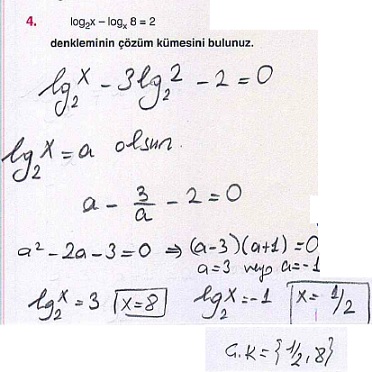 4. log₂x – logₓ 8 = 2
denkleminin çözüm kümesini bulunuz.
lg₂x - 3lg₂2 - 2 = 0
lg₂x = a olsun.
a - 3/a - 2 = 0
a² - 2a - 3 = 0 ⇒ (a-3)(a+1) = 0
a=3 veya a=-1
lg₂x = 3 x=8 lg₂x = -1 x = 1/2
Ç.K = {1/2, 8}